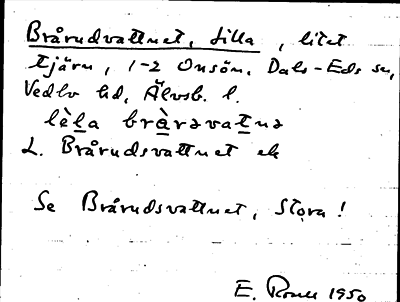 Brårudvattnet, Lilla, litet
tjärn, 1-2 Onsön, Dals-Eds sn,
Vedbo hd, Älvsb. l.
lèla bràravatnə
L. Brårudsvattnet ek
Se Brårudsvattnet, Stora!
E. 1950